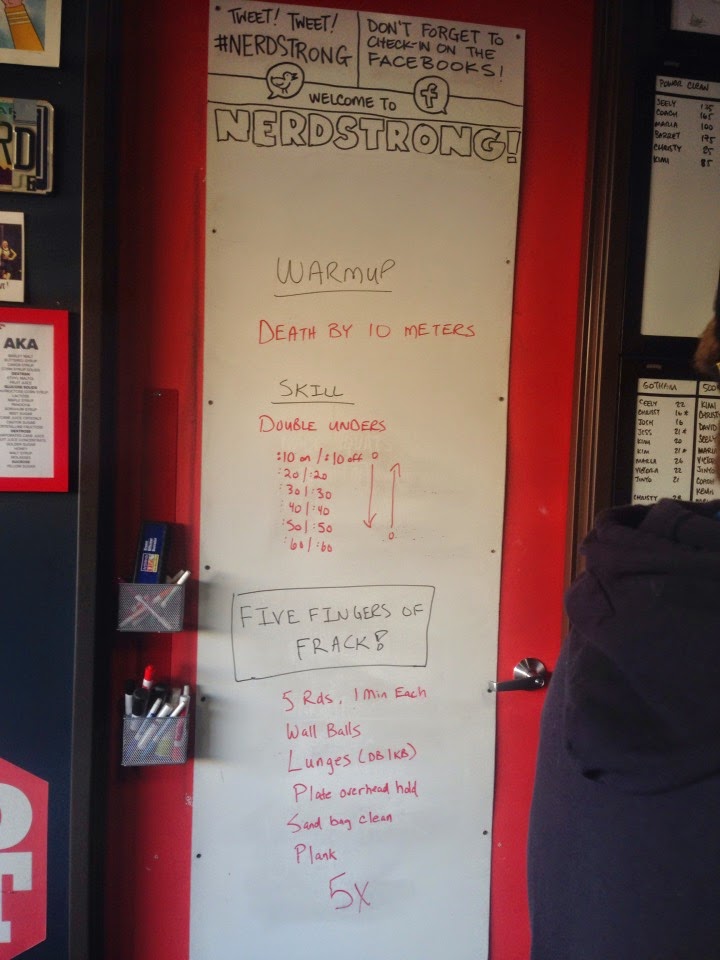 TWEET! TWEET!
#NERDSTRONG
DON'T FORGET TO
CHECK-IN ON THE
FACEBOOKS!
f
WELCOME TO
NERDSTRONG!
WARMUP
DEATH BY 10 METERS
SKILL
DOUBLE UNDERS
:10 on / :10 off
:20 / :20
:30 / :30
:40 / :40
:50 / :50
:60 / :60
FIVE FINGERS OF
FRACK!
5 Rds, 1 Min Each
Wall Balls
Lunges (DB/KB)
Plate overhead hold
Sand bag clean
Plank
5X
RD
AKA
POWER CLEAN
SEELY 135
COACH 165
MARIA 100
BARRET 195
CHRISTY 85
KIMI 85
GOTHAM
CEELY 22
CHRIST 16*
JOSH 16
JESS 21*
KIMI 20
KIM 21*
MARIA 26
VICTORIA 22
JINYO 21
CHRISTY 28
500
KIMI
DAVID
SEELY
KEVIN